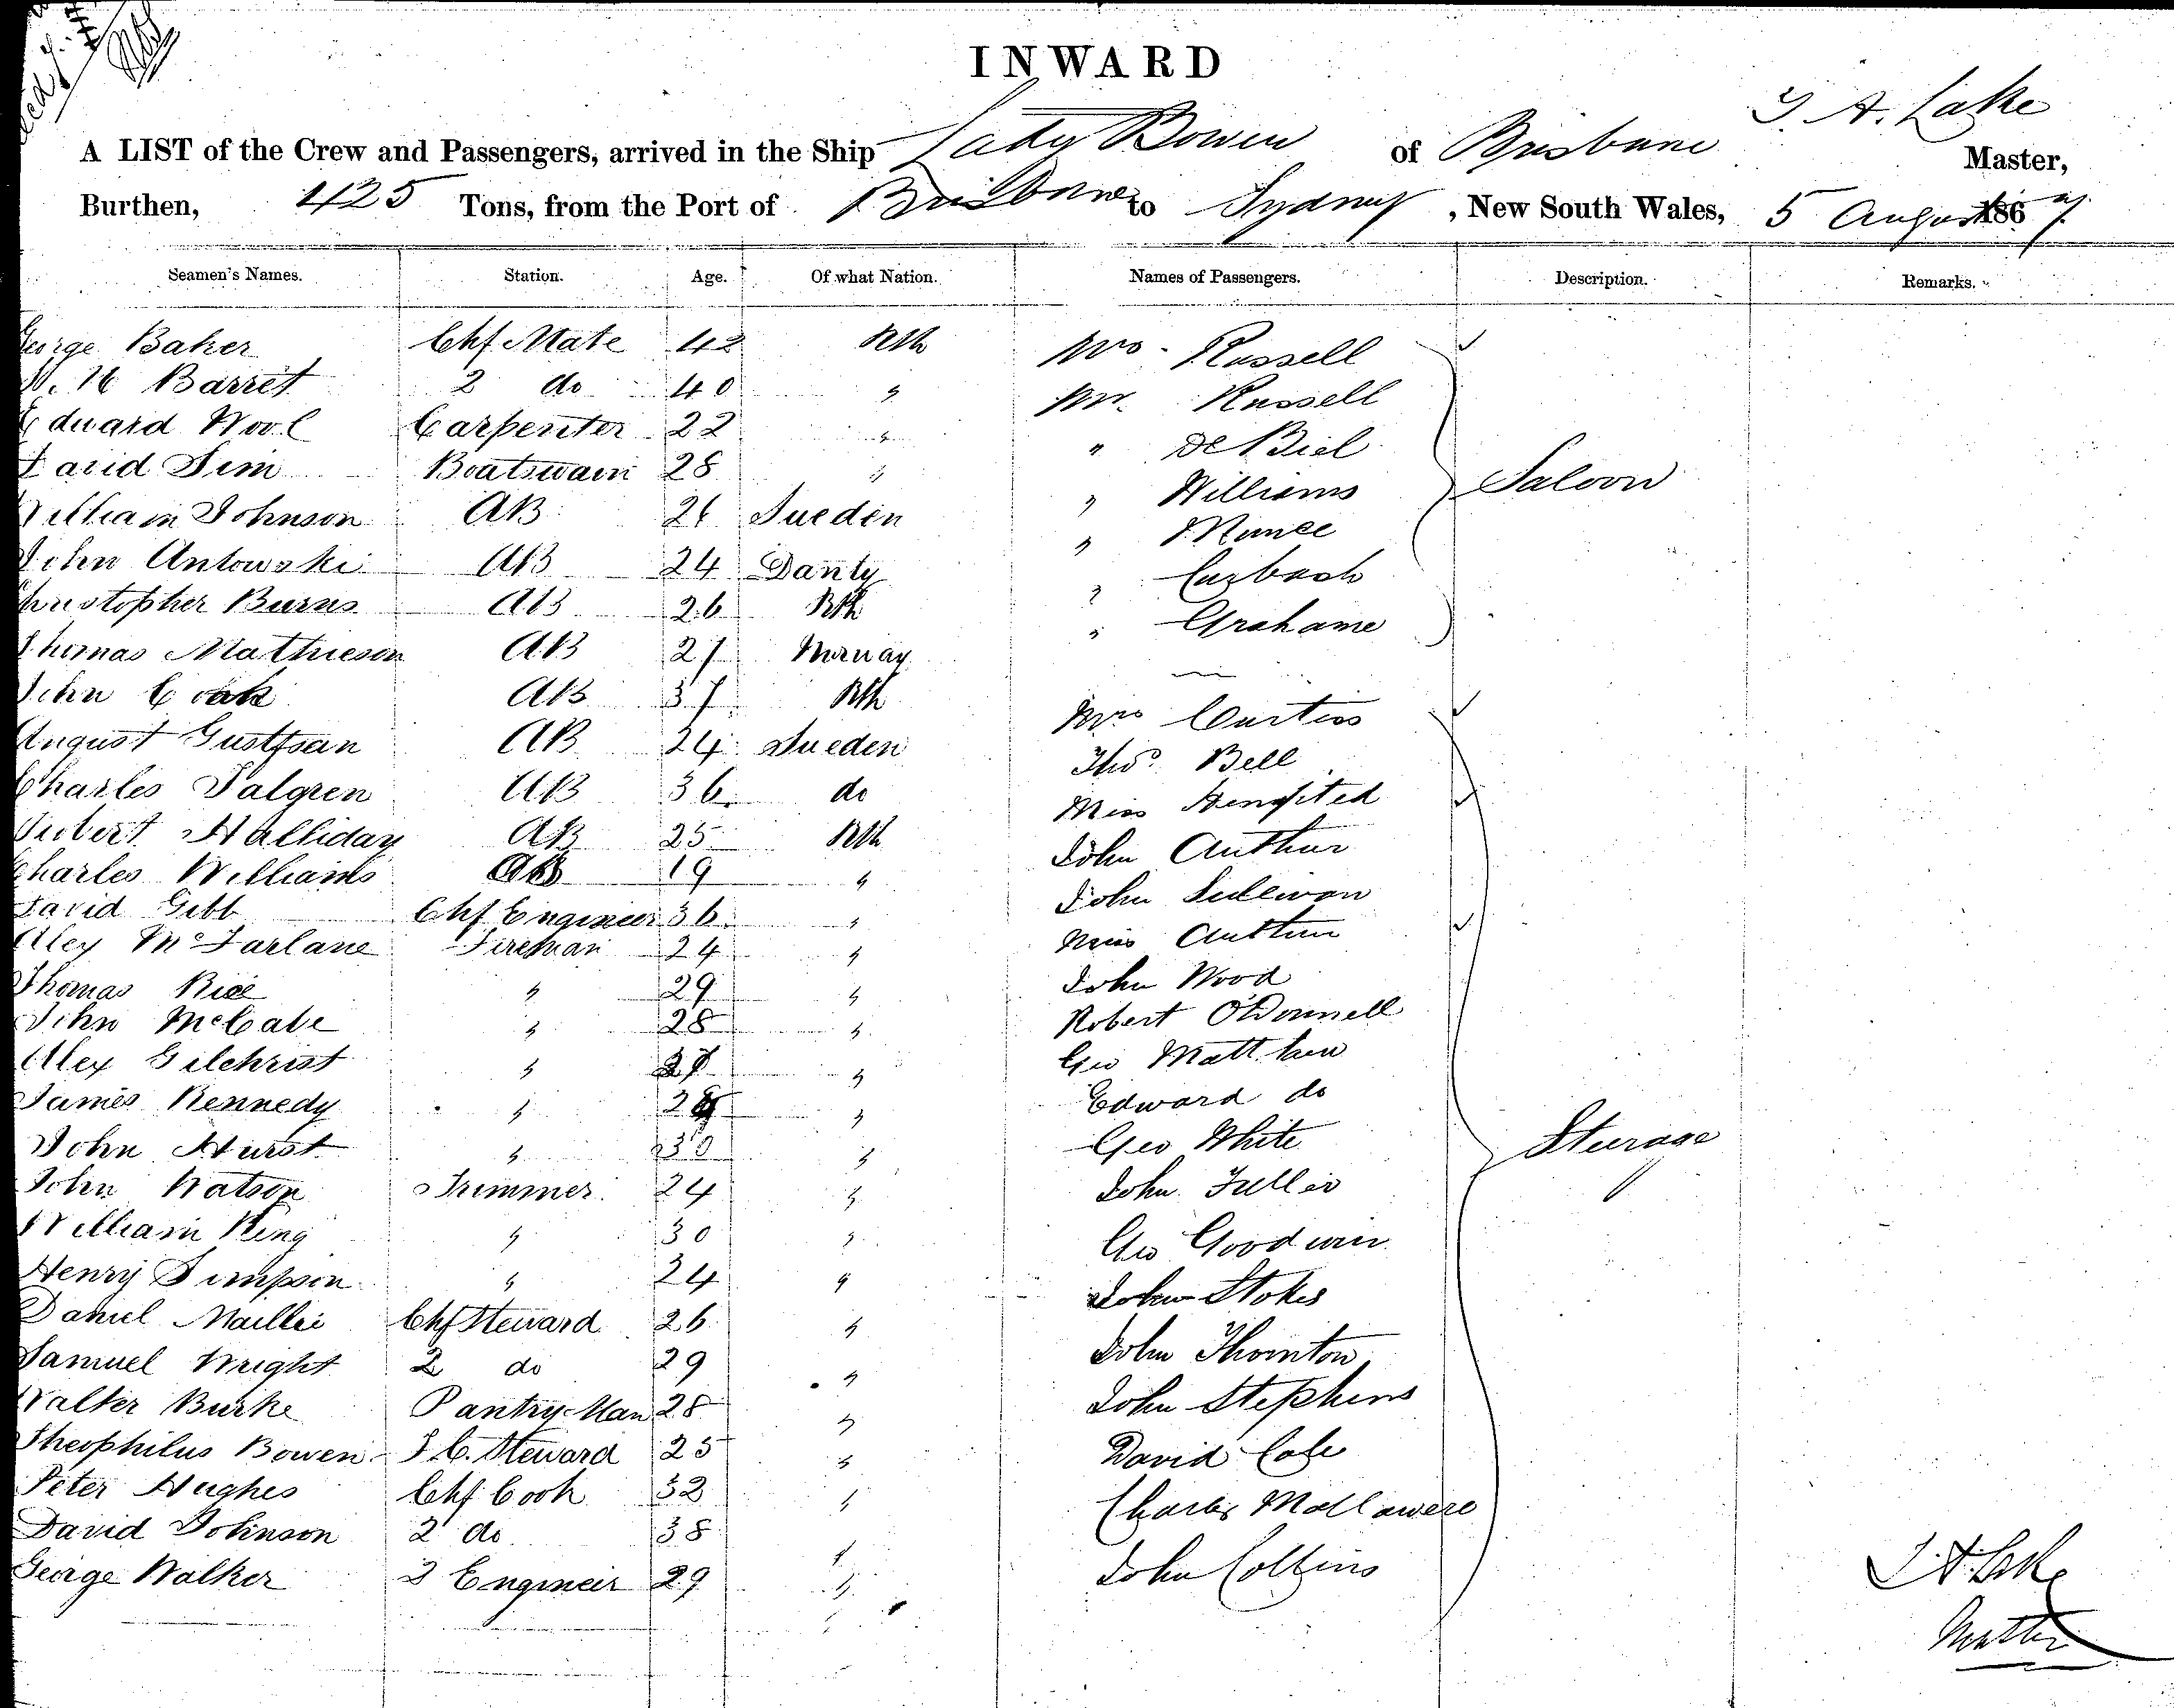 INWARD
A. Lake
A LIST of the Crew and Passengers, arrived in the Ship Lady Bowen of Brisbane Master,
Burthen, 425 Tons, from the Port of Brisbane to Sydney, New South Wales, 5 August 1867
Seamen's Names. Station. Age. Of what Nation. Names of Passengers. Description. Remarks.
George Baker Chf Mate 42 Bth Mrs Russell
Barret 2 do 40 " Mr. Russell
Edward Carpenter 22 " " De Biel
David Sim Boatswain 28 " " Williams Saloon
William Johnson AB 26 Sueden "
John Antowski AB 24 "
Christopher Burns AB 26 Bth " Grahame
Thomas Mathieson AB 27
John AB 37 Bth Mrs Curtiss
August Gustfsan AB 24 Sueden Thos Bell
Charles AB 36 do Miss
Halliday AB 25 Bth John Authur
Charles Williams AB 19 " John Sullivan
David Gibb Chf Engineer 36 " Miss
Alex McFarlane Fireman 24 " John Wood
Thomas Rice " 29 " Robert O'Donnell
John McCabe " 28 " Geo Matthew
Alex Gilchrist " "
James Kennedy " " Edward do
John Hurst " " Geo White Sturage
John Watson Trimmer 24 " John Fuller
William King " 30 " Geo Goodwin
Henry Simpson " 24 " John Stokes
Daniel Chf Steward 26 " John Thornton
Samuel Wright 2 do 29 " John Stephens
Walter Burke Pantry Man 28 "
Theophilus Bowen Steward 25 " David Cole
Peter Hughes Chf Cook 32 " Charles
David Johnson 2 do 38 "
George Walker 2 Engineir 29 " John Collins
Lake
Master